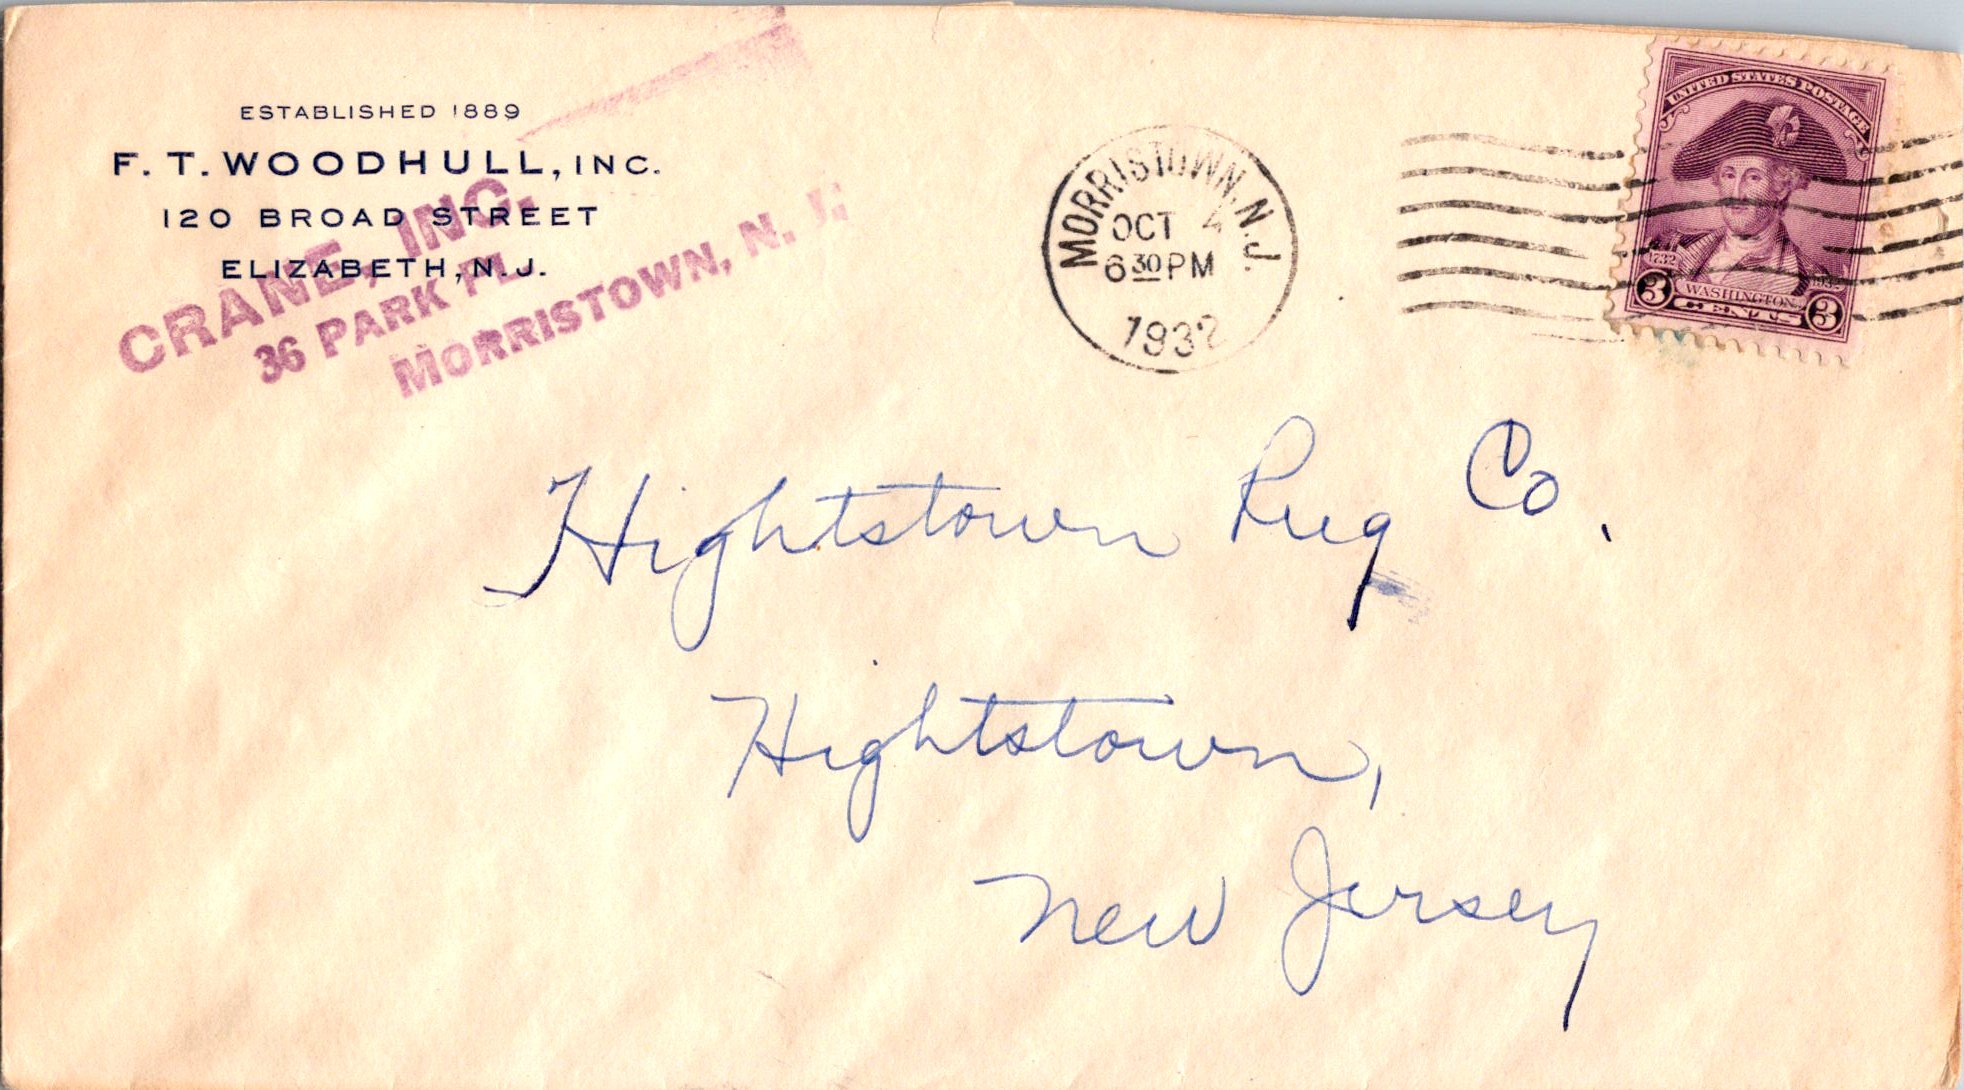 ESTABLISHED 1889
F. T. WOODHULL, INC.
120 BROAD STREET
ELIZABETH, N. J.
CRANE, INC.
36 PARK PL.
MORRISTOWN, N. J.
MORRISTOWN, N.J.
OCT 4
6 30 PM
1932
UNITED STATES POSTAGE
1732
WASHINGTON
3 CENTS 3
Hightstown Rug Co.
Hightstown,
New Jersey